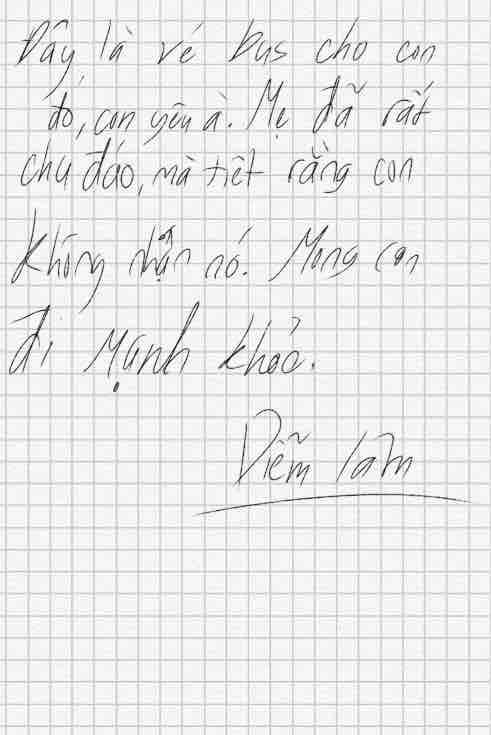 Đây là vé bus cho con
đó, con yêu à. Mẹ đã rất
chu đáo, mà tiết rằng con
không nhận nó. Mong con
đi mạnh khỏe.
Diễm lâm